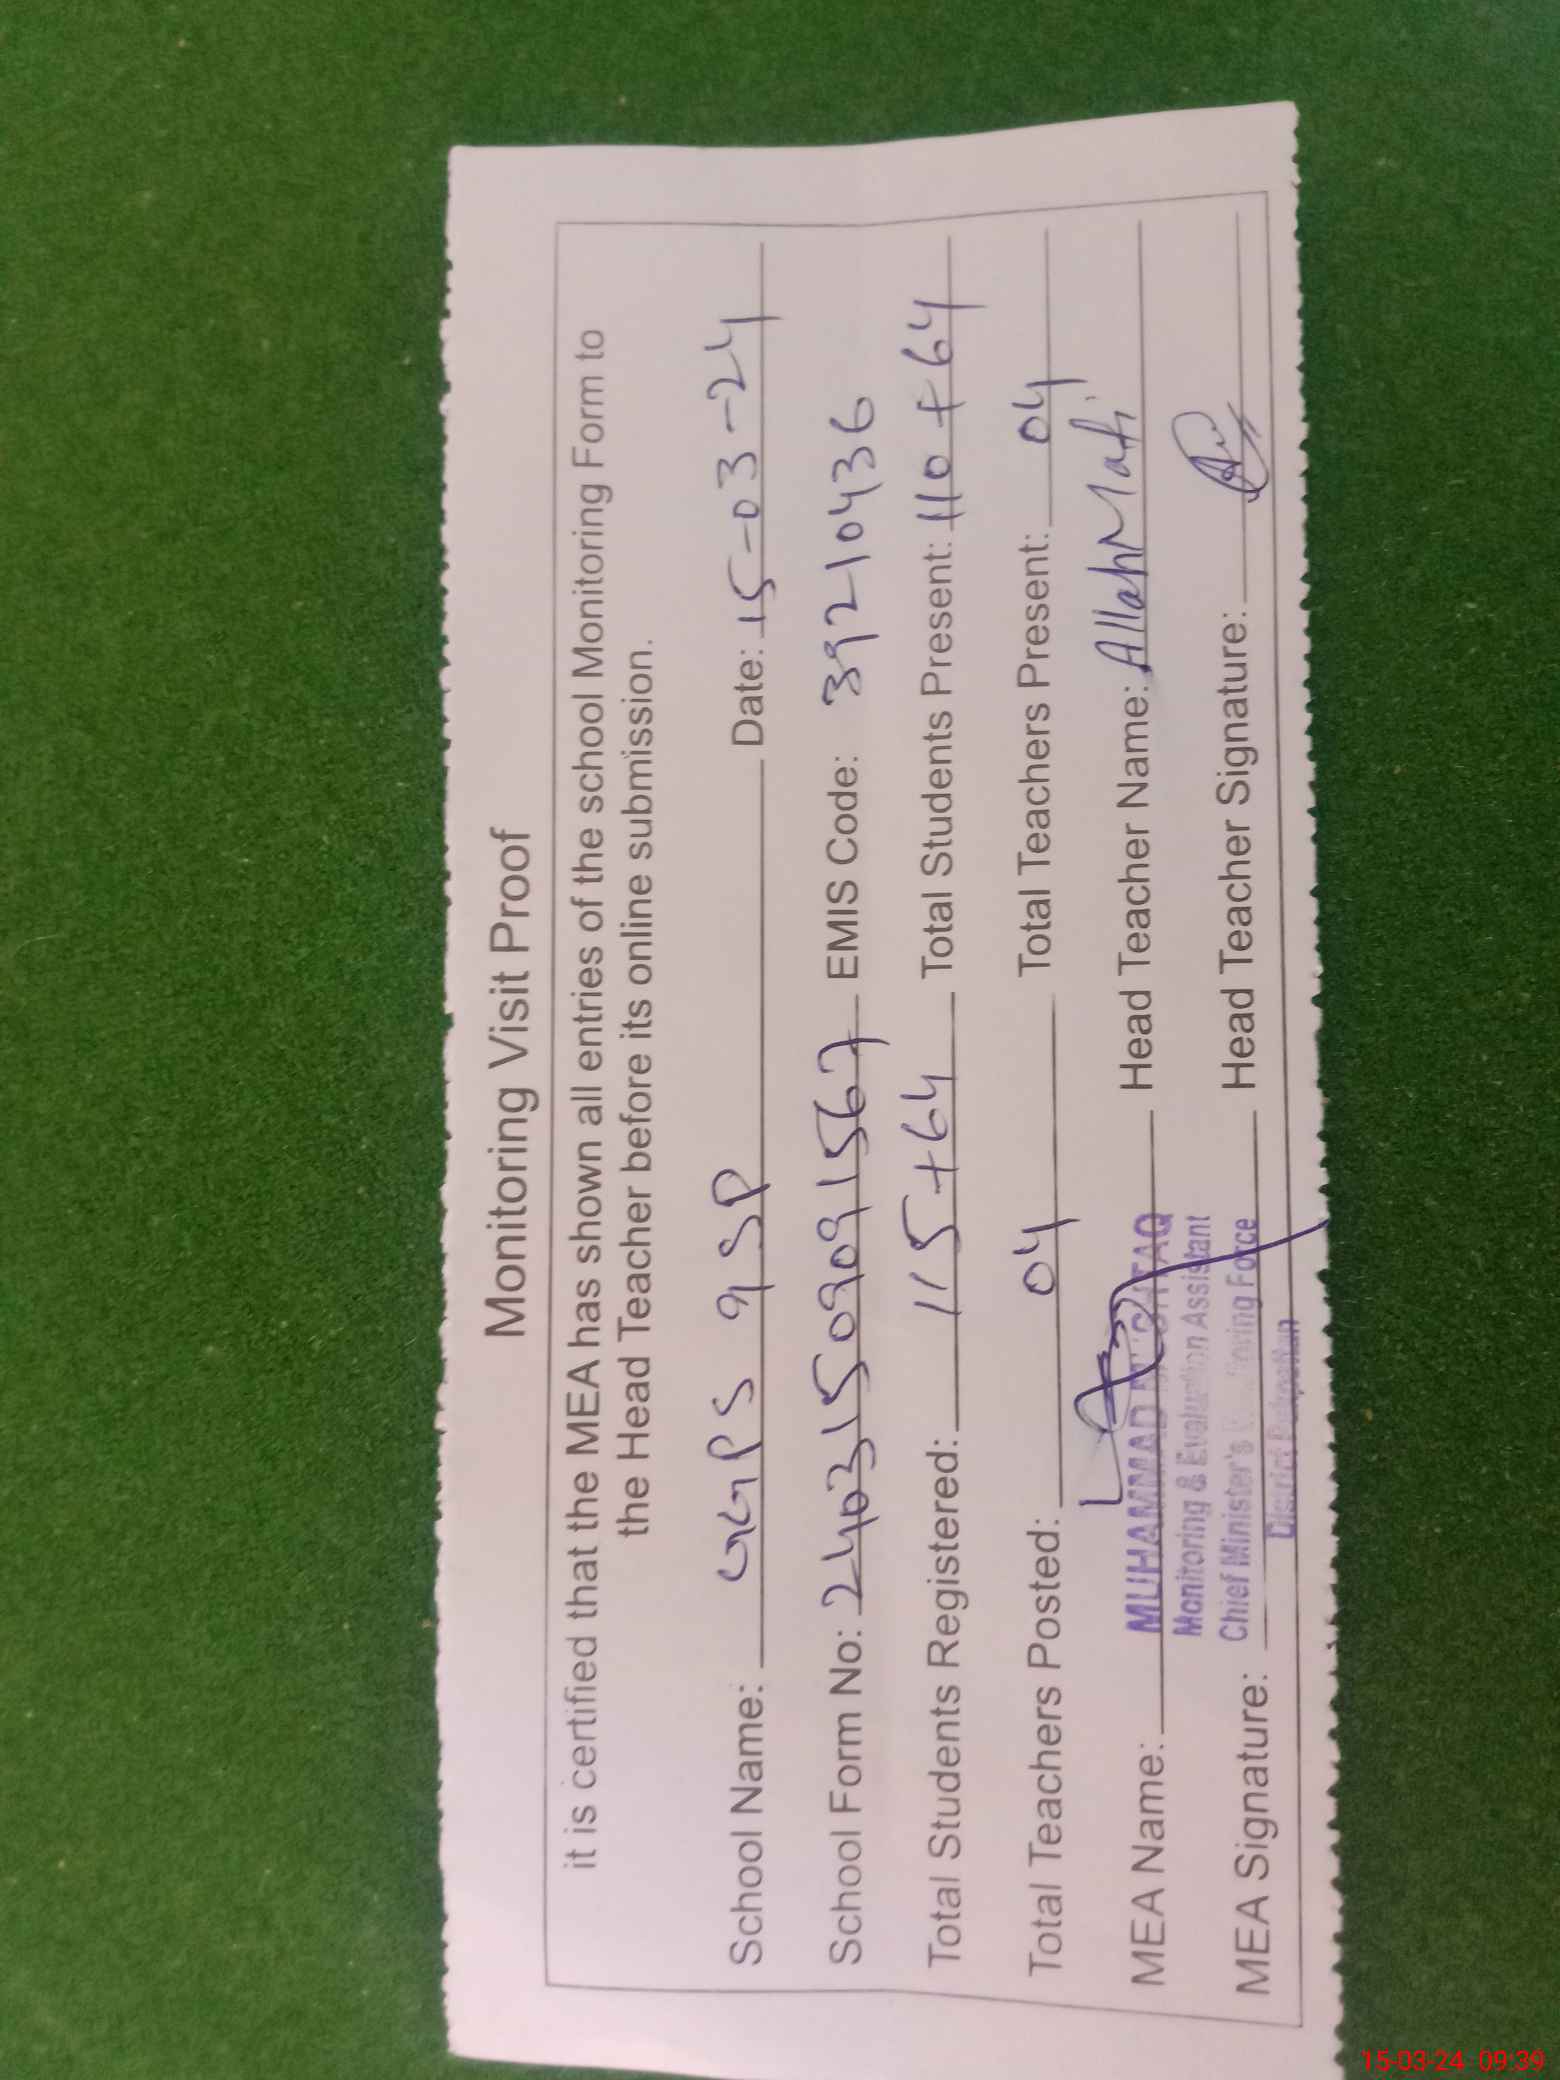 Monitoring Visit Proof
it is certified that the MEA has shown all entries of the school Monitoring Form to
the Head Teacher before its online submission.
School Name: GGPS 9 SP Date: 15-03-24
School Form No: 24031509091567 EMIS Code: 39210436
Total Students Registered: 115+64 Total Students Present: 110+64
Total Teachers Posted: 04 Total Teachers Present: 04
MEA Name: MUHAMMAD Head Teacher Name: Allah
Monitoring & Evaluation Assistant
Chief Minister's Monitoring Force
MEA Signature: Head Teacher Signature:
District Pakpattan
15-03-24 09:39